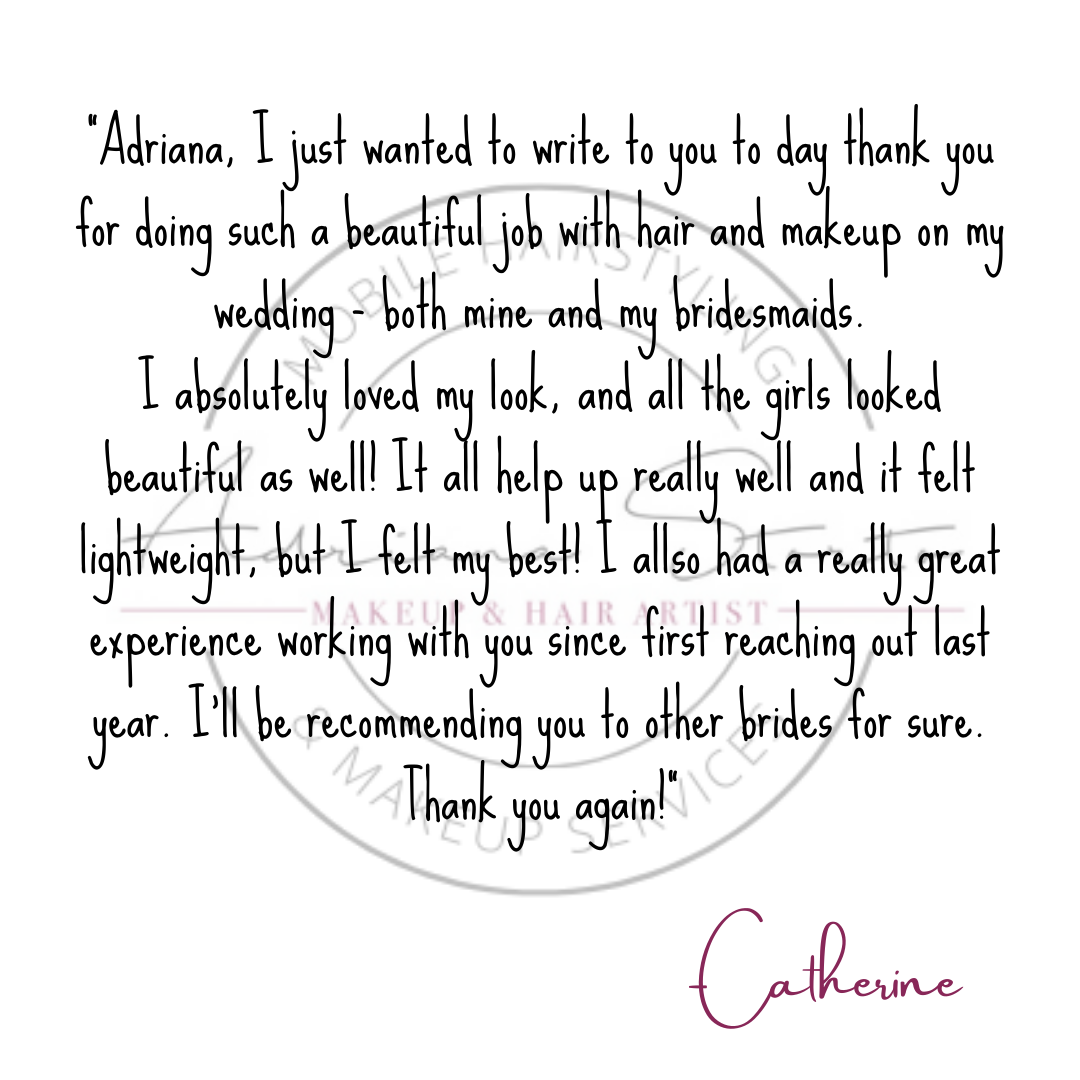 "Adriana, I just wanted to write to you to day thank you
for doing such a beautiful job with hair and makeup on my
wedding - both mine and my bridesmaids.
I absolutely loved my look, and all the girls looked
beautiful as well! It all help up really well and it felt
lightweight, but I felt my best! I allso had a really great
experience working with you since first reaching out last
year. I'll be recommending you to other brides for sure.
Thank you again!"
MOBILE HAIRSTYLING
Adriana
MAKEUP & HAIR ARTIST
& MAKEUP SERVICES
Catherine